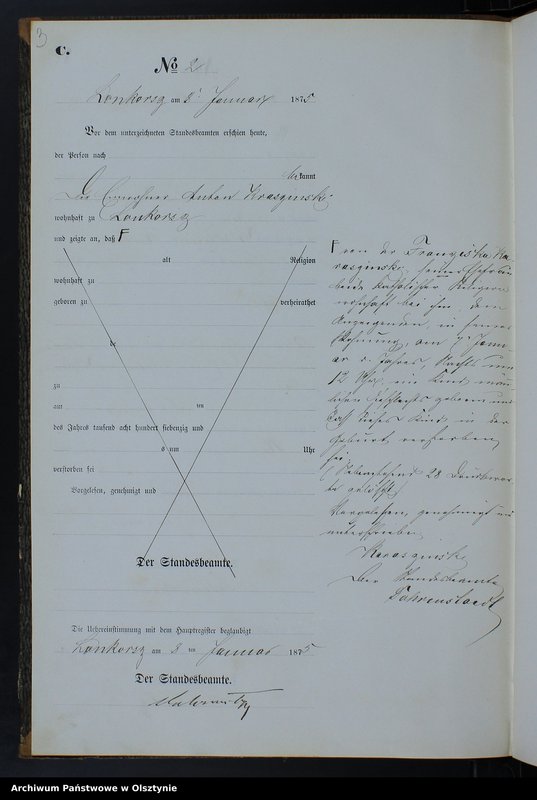 3
C.
No 2
Lonkorsz am 8ᵗ Januar 1875
Vor dem unterzeichneten Standesbeamten erschien heute,
der Person nach
be kannt
Der Einwohner Anton Krasginski
wohnhaft zu Lonkorsz
und zeigte an, daß F
alt Religion
wohnhaft zu
geboren zu verheirathet
de
zu
am ten
des Jahres tausend acht hundert siebenzig und
s um Uhr
verstorben sei
Vorgelesen, genehmigt und
Der Standesbeamte.
Die Uebereinstimmung mit dem Hauptregister beglaubigt
Lonkorsz am 8 ten Januar 1875
Der Standesbeamte.
F von der Franziska
seiner Ehefrau
beide katholischer Religion
wohnhaft bei ihm dem
Anzeigenden, in seiner
Wohnung, am 7 Janu-
ar d. Jahres, Nachts um
12 Uhr, ein Kind männ-
lichen Geschlechts geboren und
daß dieses Kind in der
Geburt verstorben
sei.
Nebenstehend 28 Druckwor-
te gelöscht
Vorgelesen, genehmigt und
unterschrieben
Krasginski
Der Standesbeamte
Fahrenstaedt
Archiwum Państwowe w Olsztynie